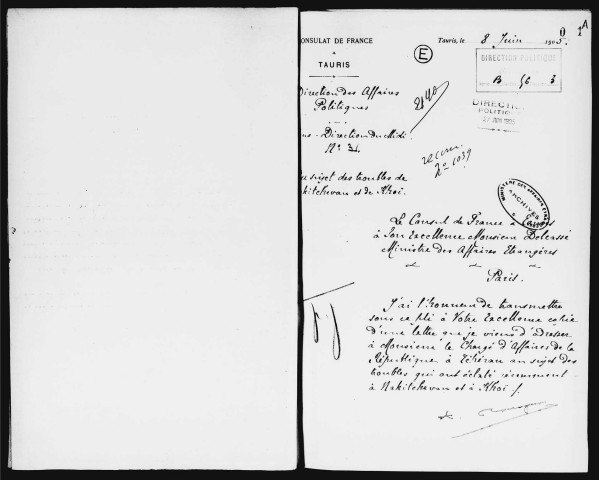 CONSULAT DE FRANCE
À
TAURIS
Tauris, le 8 Juin 1905.
1A
E
DIRECTION POLITIQUE
B 56 3
DIRECTION
POLITIQUE
27 JUIN 1905
Direction des Affaires
Politiques
us-Direction du Midi
No 3.
recom.
No 1039
au sujet des troubles de
akitchevan et de Khoï.
MINISTERE DES AFFAIRES ETRANGERES
ARCHIVES
Le Consul de France à Tauris
à Son Excellence Monsieur Delcassé
Ministre des Affaires Etrangères
Paris.
J'ai l'honneur de transmettre
sous ce pli à Votre Excellence copie
d'une lettre que je viens d'adresser
à Monsieur le Chargé d'Affaires de la
République à Téhéran au sujet des
troubles qui ont éclaté récemment
à Nakitchevan et à Khoï /.